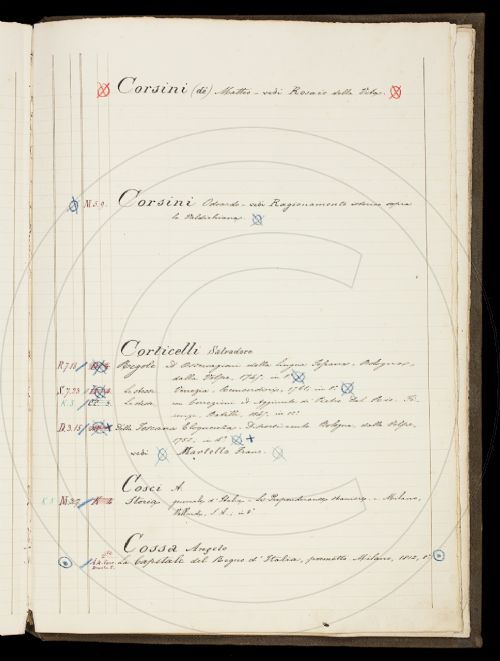 Corsini (di) Matteo - vedi Rosaio della Vita.
M.5.9. Corsini Odoardo - vedi Ragionamento istorico sopra
la Valdichiana.
Corticelli Salvadore
R.7.11 Regole ed Osservazioni della Lingua Toscana, Bologna,
dalla Volpe, 1745. in 8°
S.7.23 Le stesse. Venezia, Remondini, 1761. in 8°
K.8 Le stesse. con Correzioni ed Aggiunte di Pietro Dal Rio. Firenze, Batelli, in 12°
D.3.15 Della Toscana Eloquenza. Discorsi cento. Bologna, dalla Volpe,
1752. in 4°
vedi Martello Franc.
Cosci A.
K.8 M.2.7 Storia generale d'Italia - Le Preponderanze straniere. - Milano,
Vallardi, S.A., in 8°
Cossa Angelo
La Capitale del Regno d'Italia, poemetto. Milano, 1812, 8°